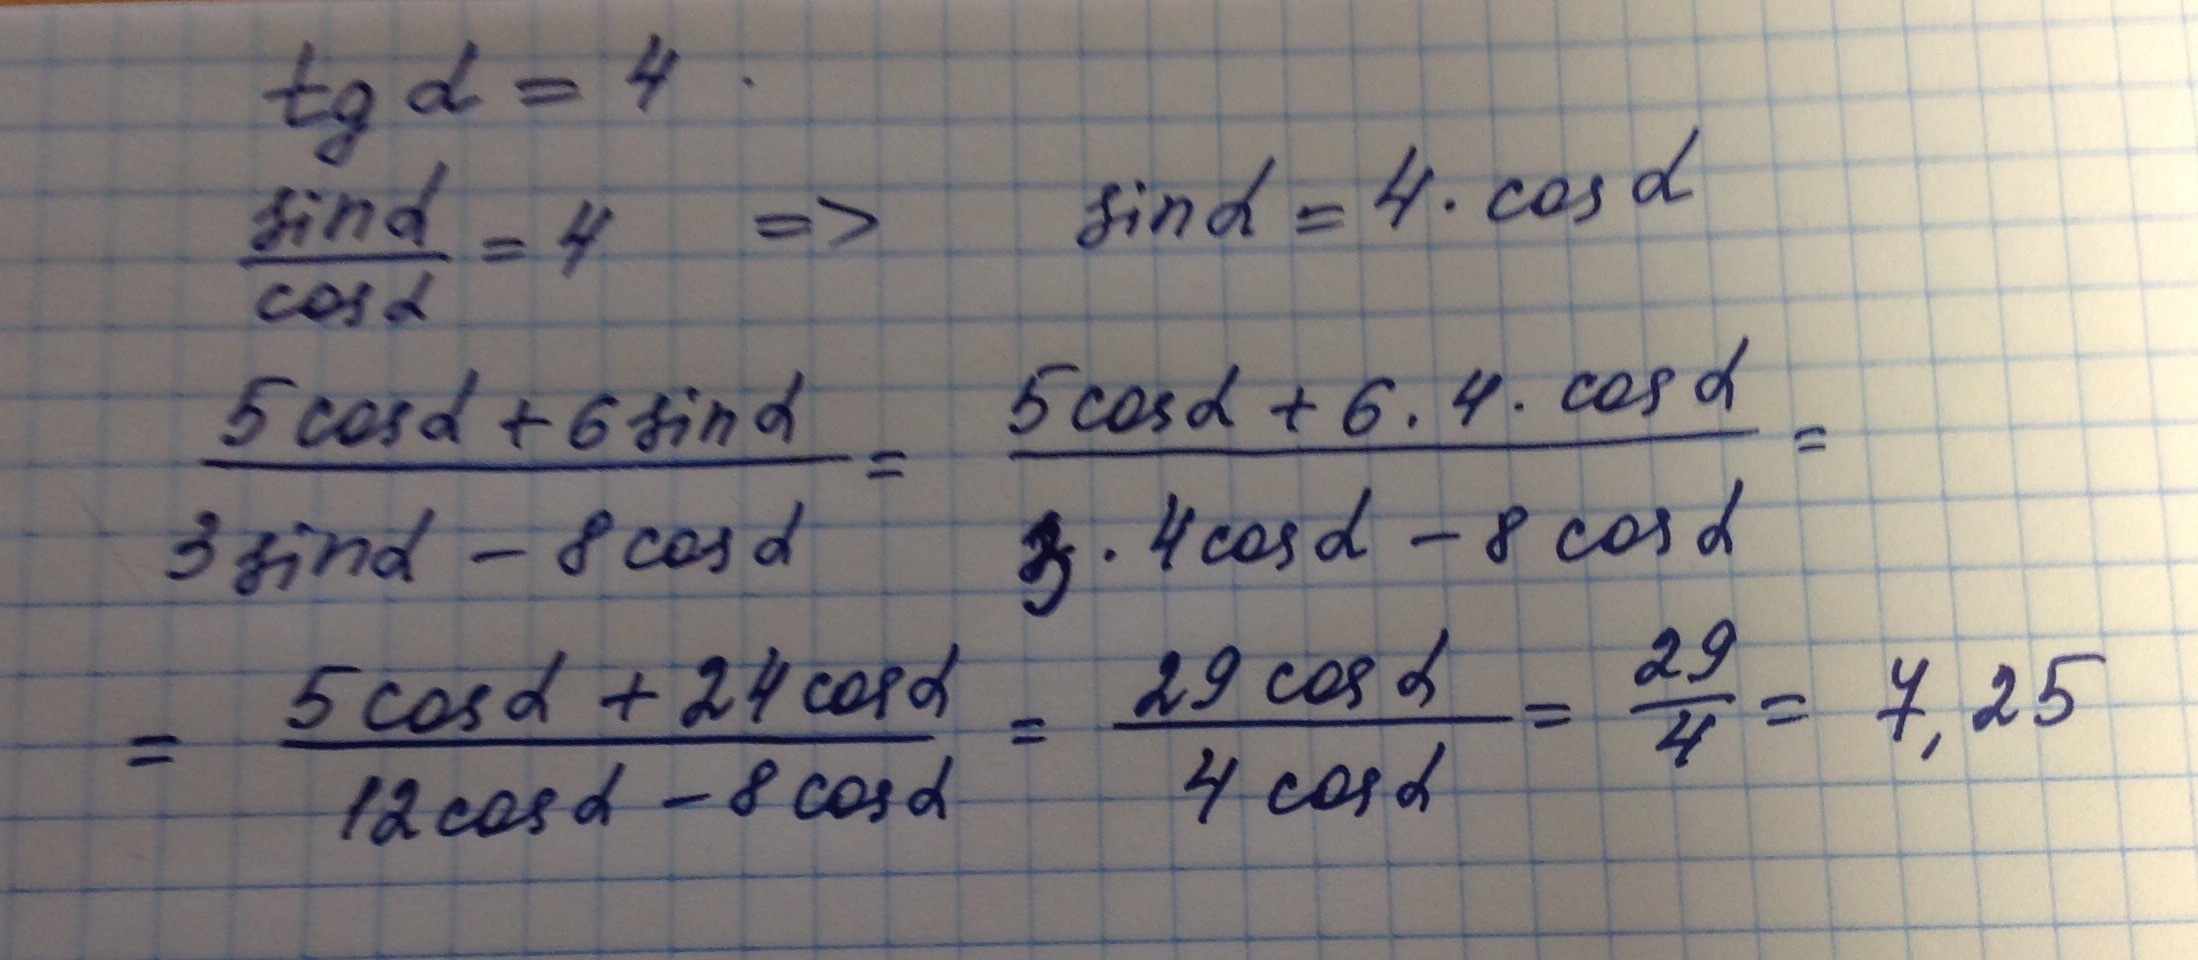 tg α = 4
sin α / cos α = 4 => sin α = 4 · cos α
(5 cos α + 6 sin α) / (3 sin α - 8 cos α) = (5 cos α + 6 · 4 · cos α) / (3 · 4 cos α - 8 cos α) =
= (5 cos α + 24 cos α) / (12 cos α - 8 cos α) = 29 cos α / 4 cos α = 29/4 = 7,25